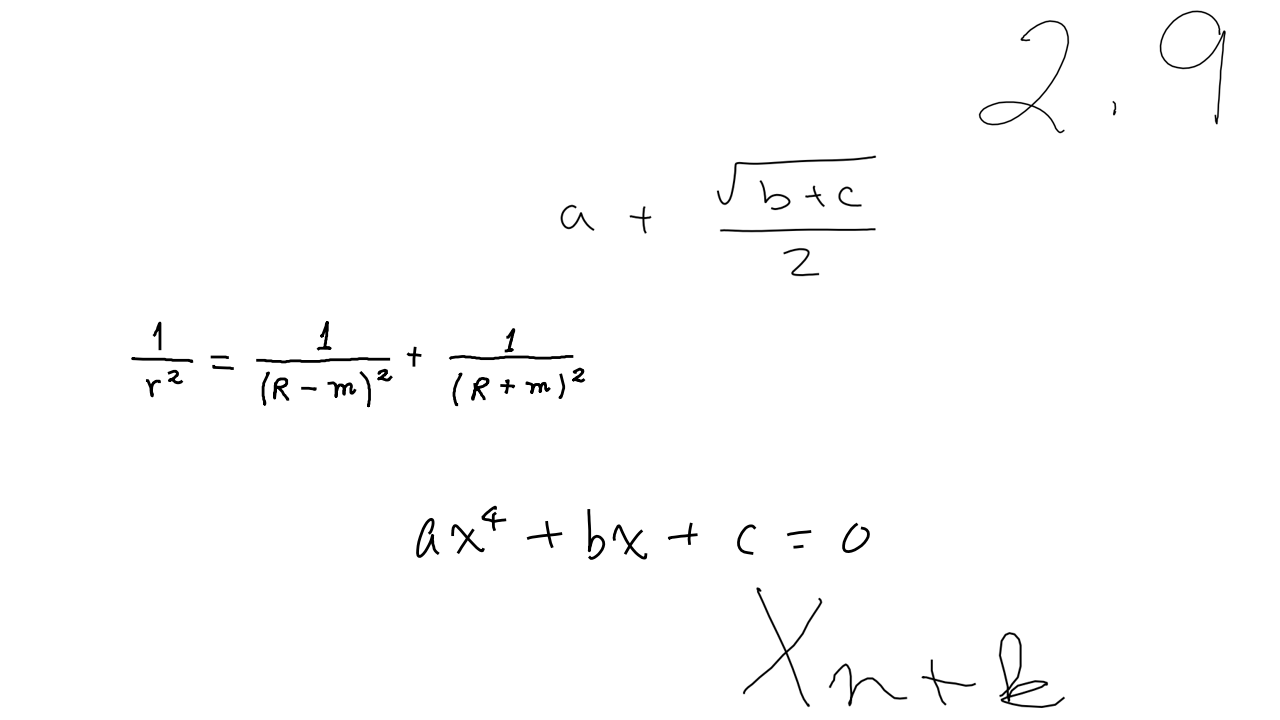 2.9
a + \frac{\sqrt{b+c}}{2}
\frac{1}{r^2} = \frac{1}{(R-m)^2} + \frac{1}{(R+m)^2}
ax^4 + bx + c = 0
X_{n+k}